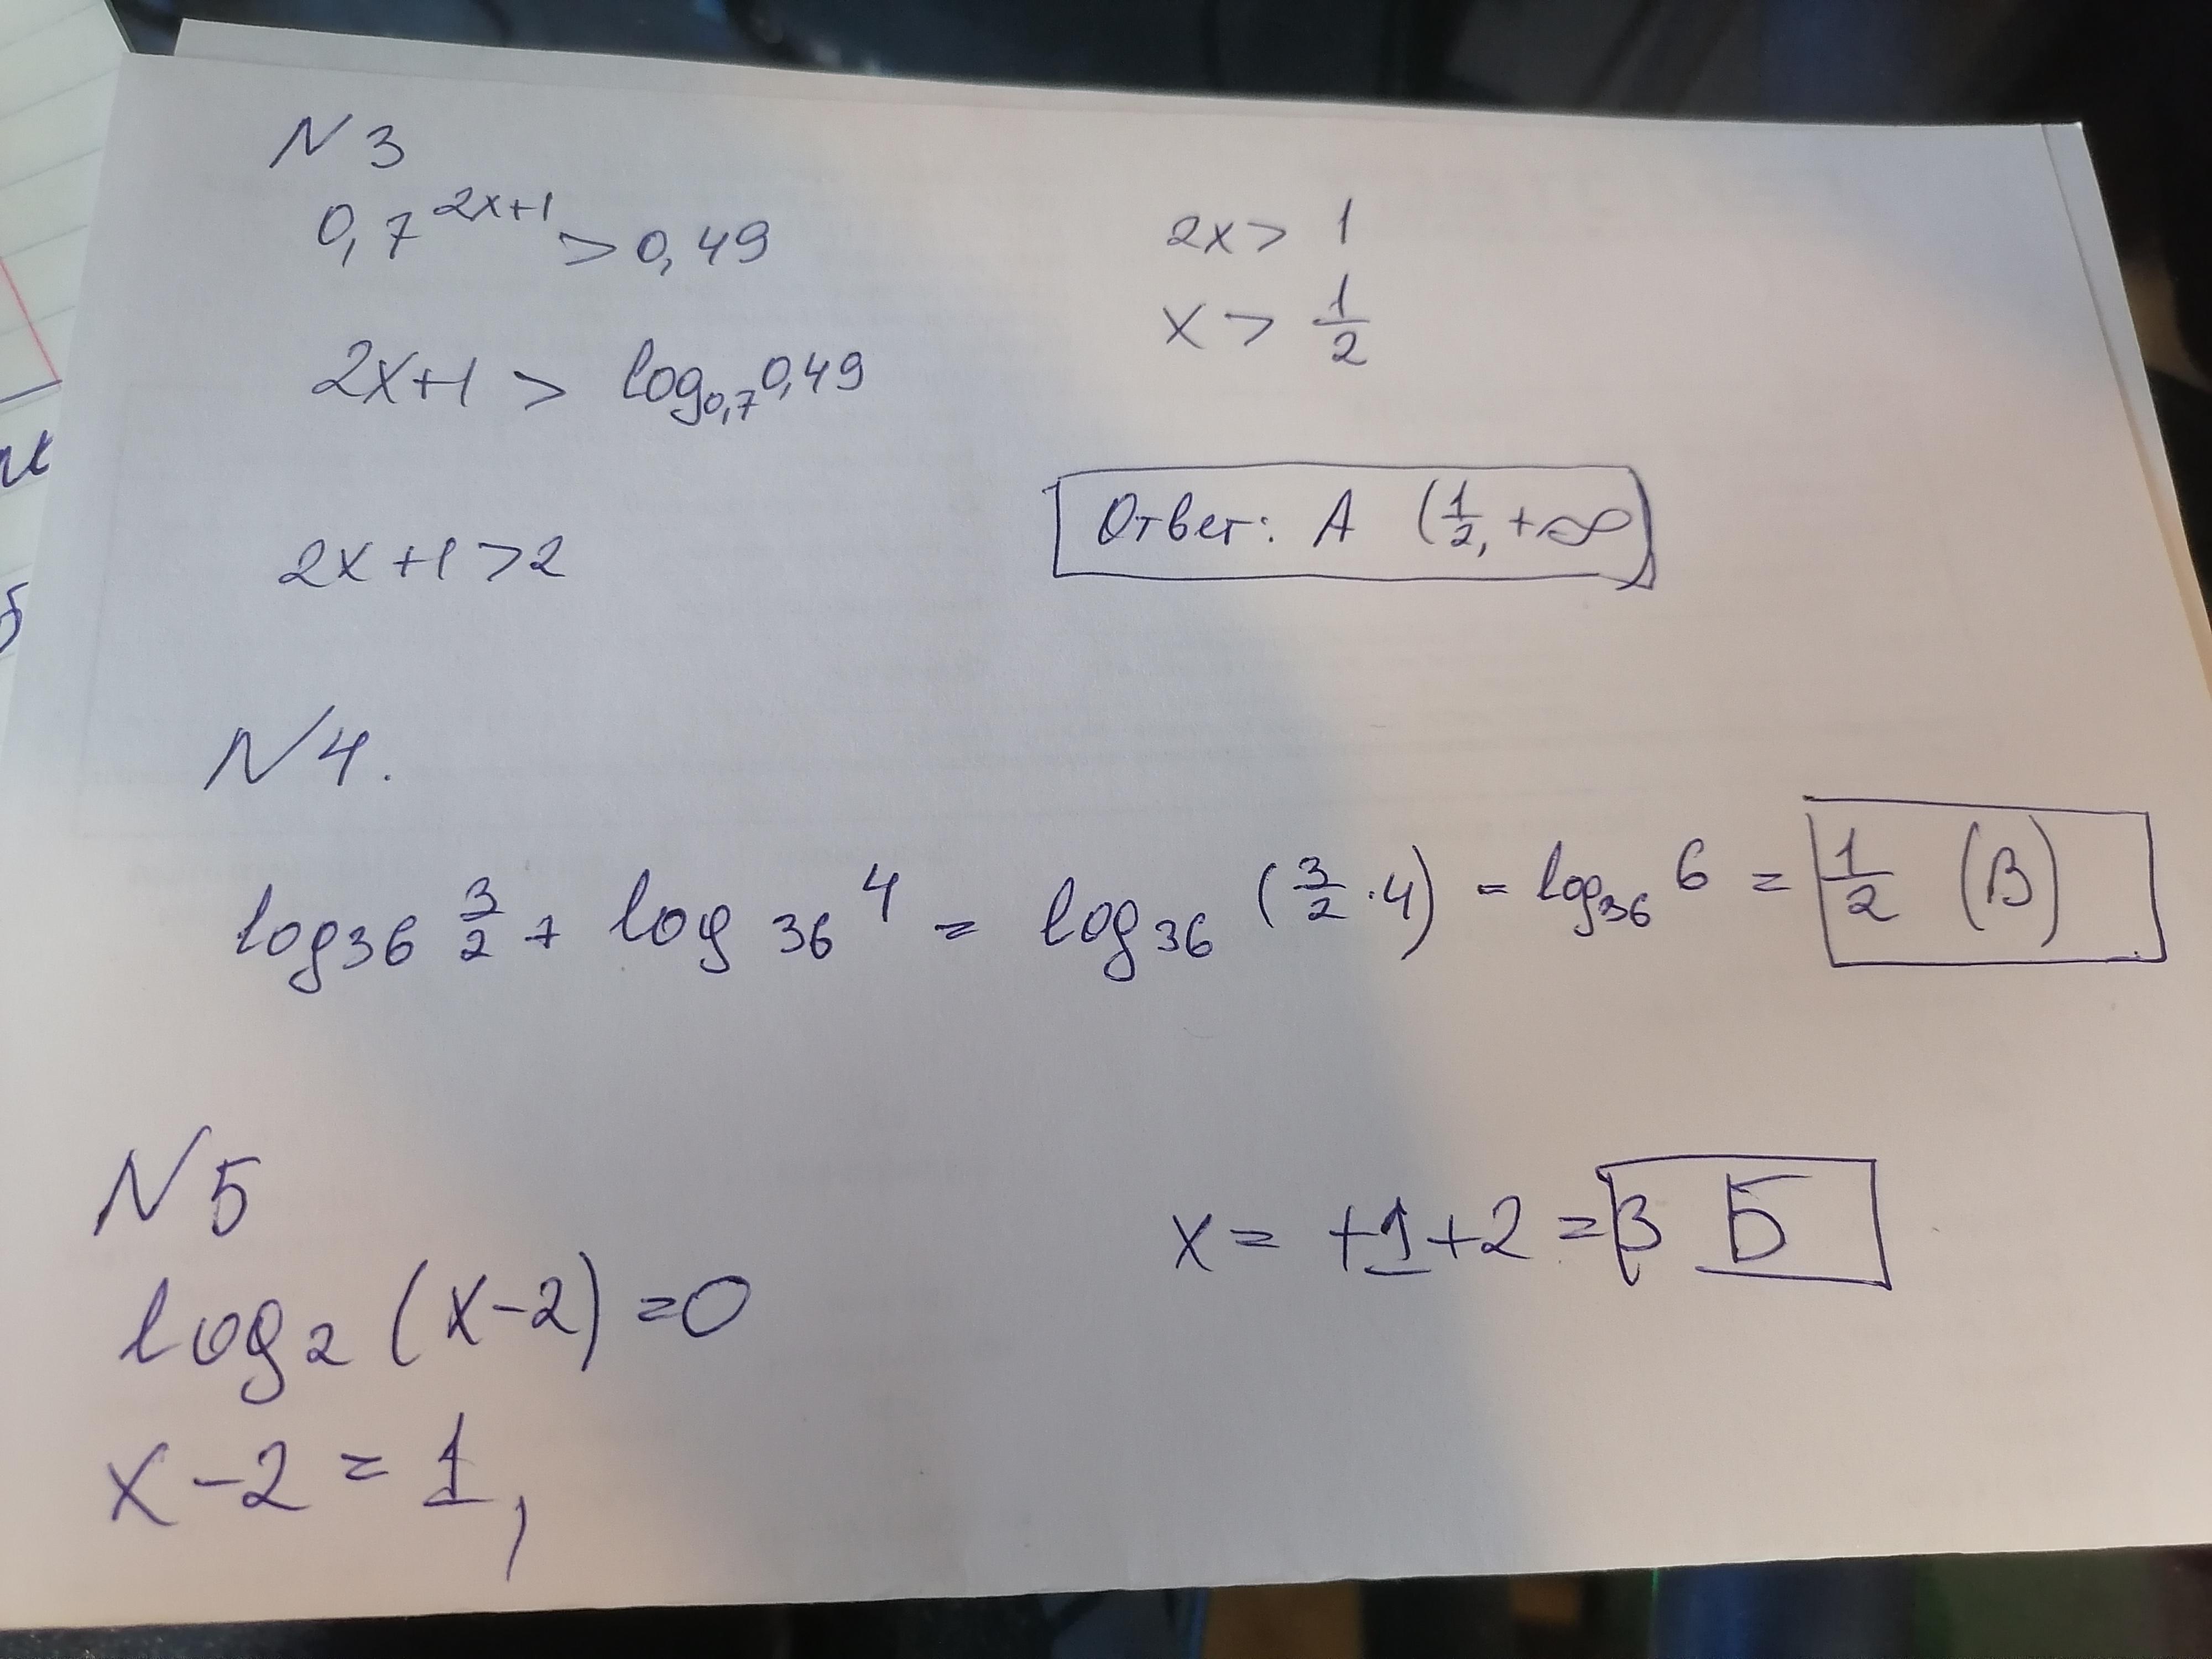 N 3
0,7^{2x+1} > 0,49
2x+1 > log_{0,7} 0,49
2x+1 >2
2x > 1
x > \frac{1}{2}
Ответ: А (\frac{1}{2}, +∞)
N 4.
log_{36} \frac{3}{2} + log_{36} 4 = log_{36} (\frac{3}{2} · 4) = log_{36} 6 = \frac{1}{2} (В)
N 5
log_2 (x-2) =0
x-2 = 1,
x = +1+2 =3 Б